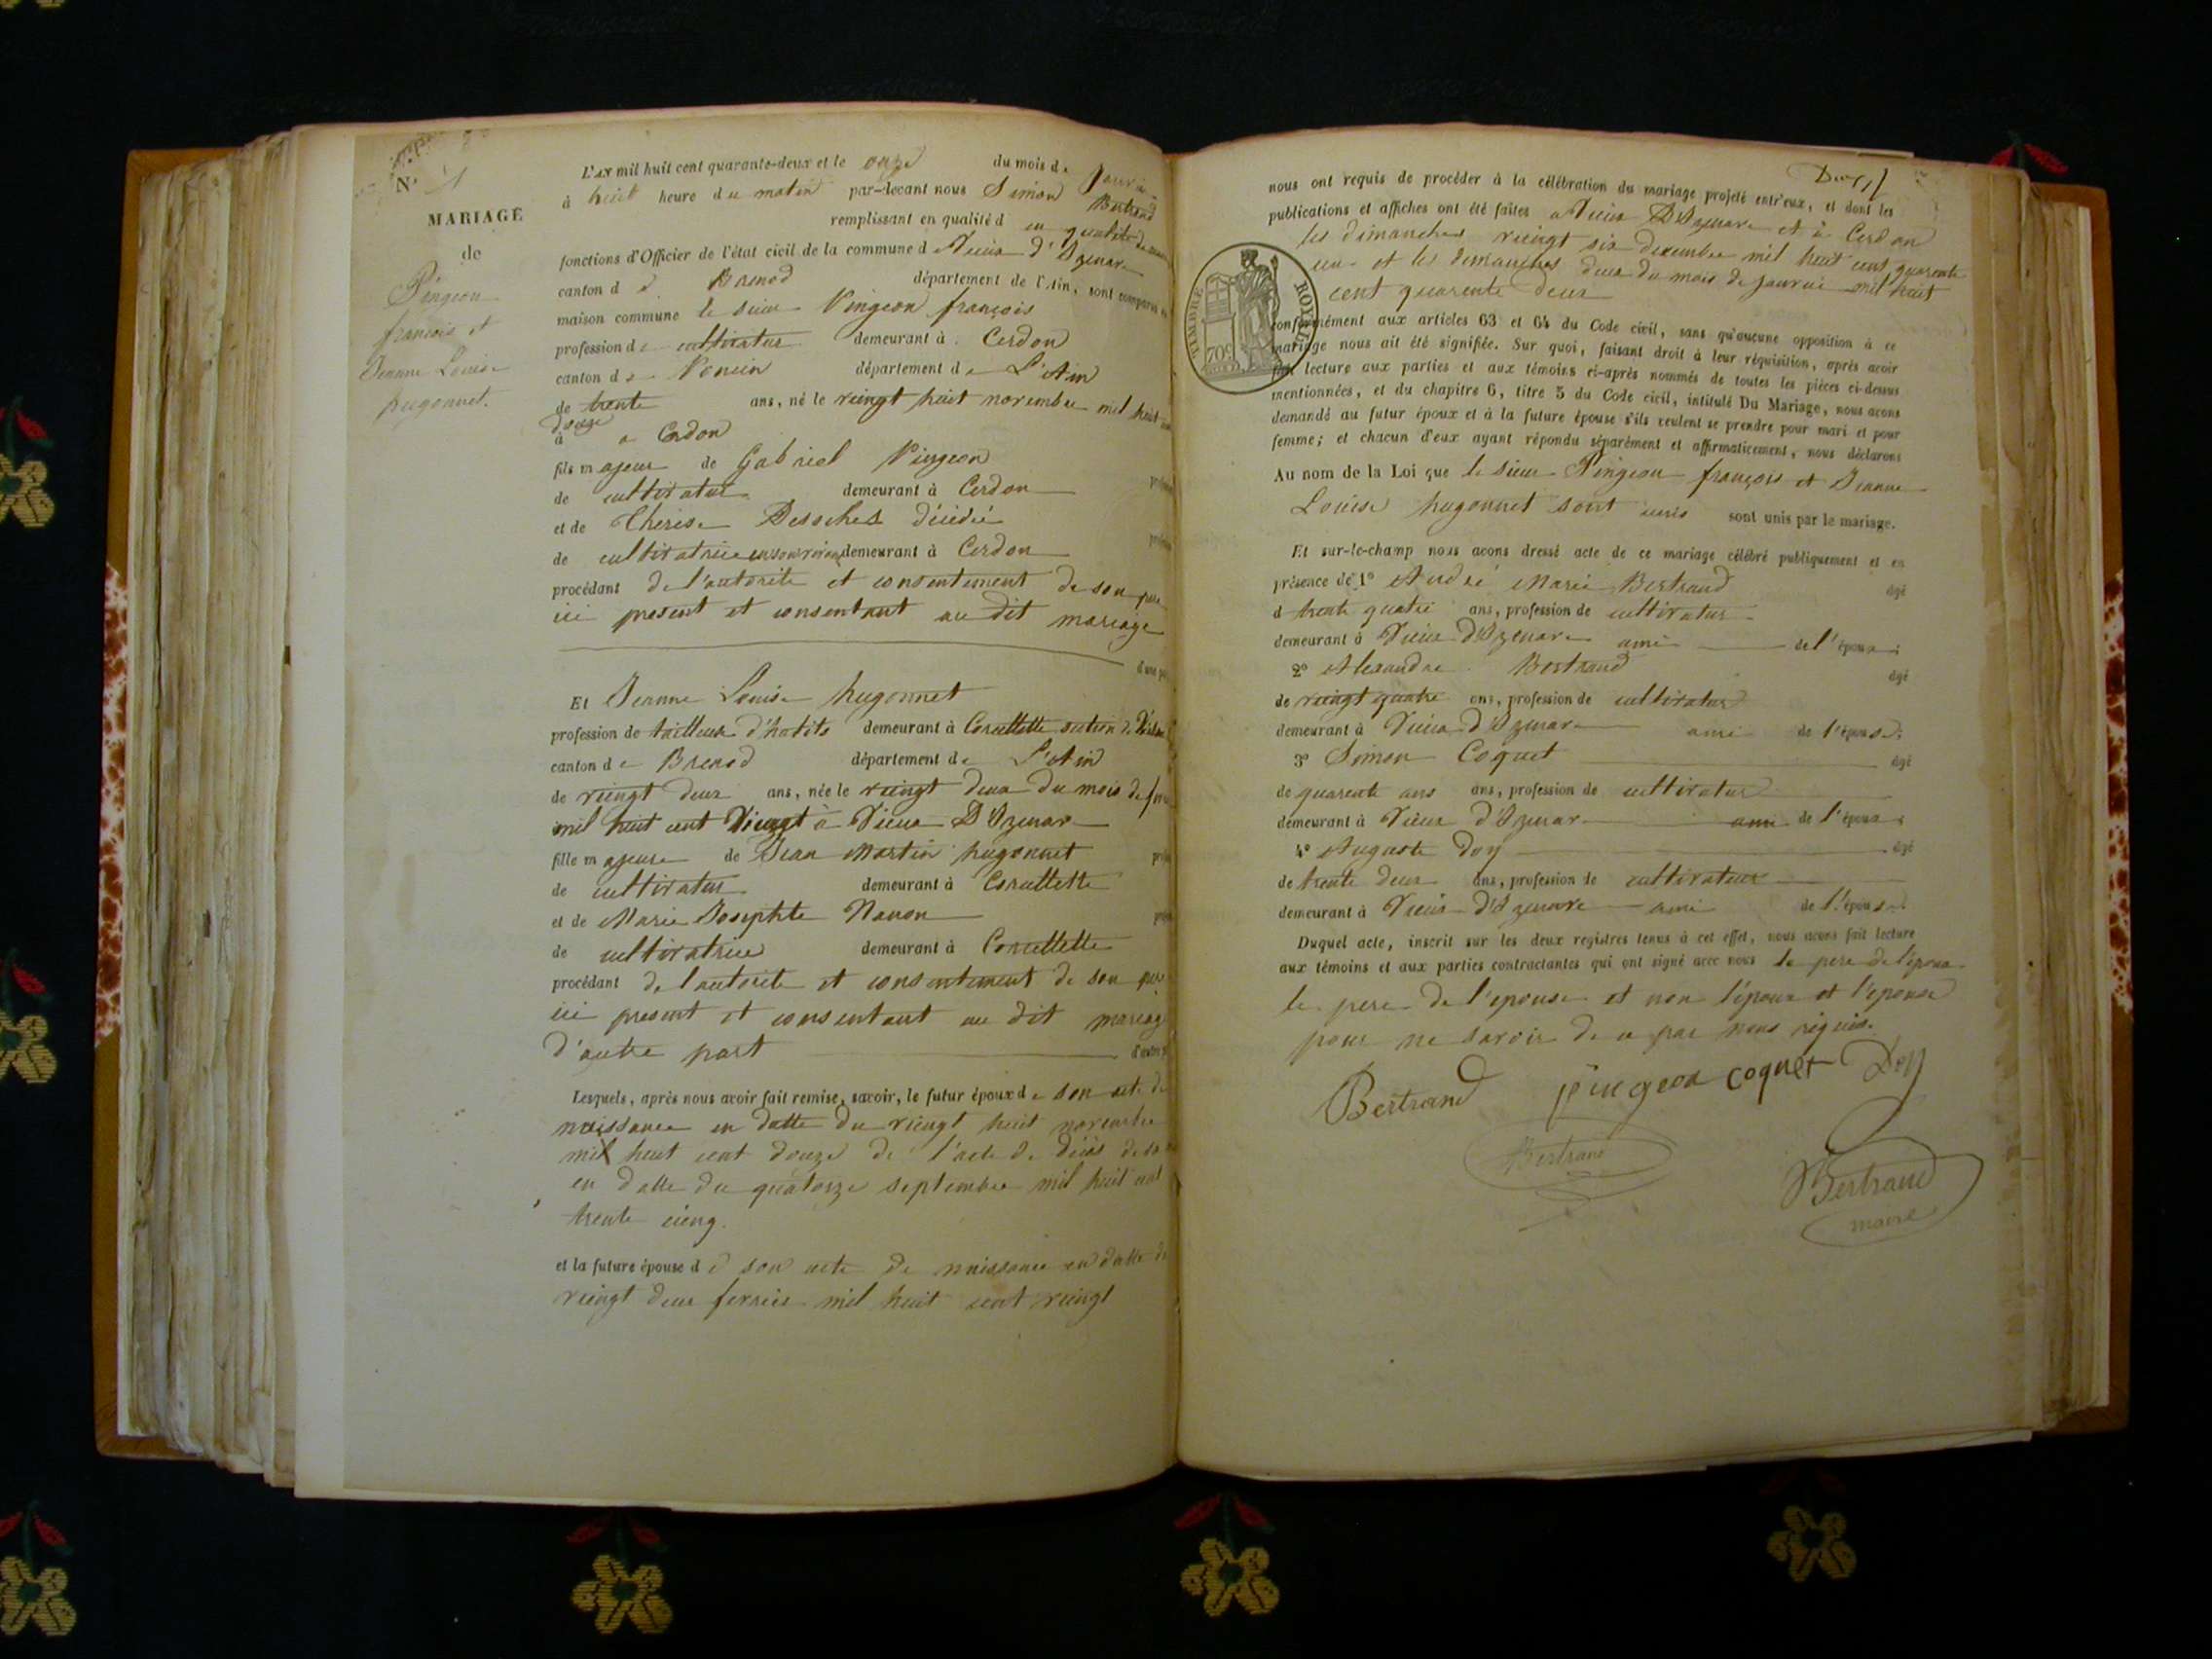 N° 1
MARIAGE
de
Pingeon
françois et
Jeanne Louise
hugonnet.
L'an mil huit cent quarante-deux et le onze du mois de Janvier
à huit heure du matin par-devant nous Simon Bertrand
remplissant en qualité d en qualité de maire
fonctions d'Officier de l'état civil de la commune de Vieux d'Izenave
canton d e Brenod département de l'Ain, sont comparus en
maison commune le sieur Pingeon françois
profession de cultivateur demeurant à Cerdon
canton de Poncin département de L'Ain
de trente ans, né le vingt huit novembre mil huit cent
douze
à a Cerdon
fils majeur de Gabriel Pingeon
de cultivateur demeurant à Cerdon
et de Thérèse Desoches décédée
de cultivatrice en son vivant demeurant à Cerdon
procédant de l'autorite et consentement de son pere
ici present et consentant au dit mariage
d'une part
Et Jeanne Louise hugonnet
profession de tailleuse d'habits demeurant à Corcellette section de
canton de Brenod département de L'Ain
de vingt deux ans, née le vingt deux du mois de
mil huit cent Vingt à Vieux D'Izenave
fille majeure de Jean Martin hugonnet
de cultivateur demeurant à Corcellette
et de Marie Josephte Nanon
de cultivatrice demeurant à Corcellette
procédant de l'autorite et consentement de son pere
ici present et consentant au dit mariage
d'autre part d'autre part
Lesquels, après nous avoir fait remise, savoir, le futur époux de son acte de
naissance en datte du vingt huit novembre
mil huit cent douze de l'acte de décès de sa
en datte du quatorze septembre mil huit cent
trente cinq.
et la future épouse d e son acte de naissance en datte du
vingt deux fevrier mil huit cent vingt
nous ont requis de procéder à la célébration du mariage projeté entr'eux, et dont les
publications et affiches ont été faites a Vieux D'Izenave et à Cerdon
les dimanches vingt six decembre mil huit cent quarente
un et les dimanches deux du mois de janvier mil huit
cent quarente deux
TIMBRE ROYAL
70c
conformément aux articles 63 et 64 du Code civil, sans qu'aucune opposition à ce
mariage nous ait été signifiée. Sur quoi, faisant droit à leur réquisition, après avoir
fait lecture aux parties et aux témoins ci-après nommés de toutes les pièces ci-dessus
mentionnées, et du chapitre 6, titre 5 du Code civil, intitulé Du Mariage, nous avons
demandé au futur époux et à la future épouse s'ils veulent se prendre pour mari et pour
femme; et chacun d'eux ayant répondu séparément et affirmativement, nous déclarons
Au nom de la Loi que le sieur Pingeon françois et Jeanne
Louise hugonnet sont unis sont unis par le mariage.
Et sur-le-champ nous avons dressé acte de ce mariage célébré publiquement et en
présence de 1° André Marie Bertrand âgé
d trente quatre ans, profession de cultivateur
demeurant à Vieux D'Izenave ami de l'époux;
2° Alexandre Bertrand âgé
de vingt quatre ans, profession de cultivateur
demeurant à Vieux D'Izenave ami de l'épouse;
3° Simon Coquet âgé
de quarente ans ans, profession de cultivateur
demeurant à Vieux D'Izenave ami de l'époux;
4° Auguste Doy âgé
de trente deux ans, profession de cultivateur
demeurant à Vieux D'Izenave ami de l'épouse.
Duquel acte, inscrit sur les deux registres tenus à cet effet, nous avons fait lecture
aux témoins et aux parties contractantes qui ont signé avec nous le pere de l'époux
le pere de l'epouse et non l'époux et l'epouse
pour ne savoir de ce par nous requis.
Bertrand pingeon coquet Doy
Bertrand
Bertrand
maire